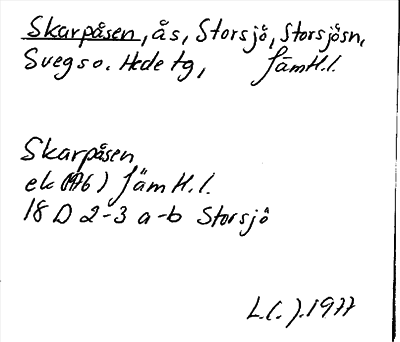 Skarpåsen, ås, Storsjö, Storsjösn,
Svegs o. Hede tg, JämtH.l.
Skarpåsen
ek (1976) Jämt H.l.
18 D 2-3 a-b Storsjö
L.( ).1977